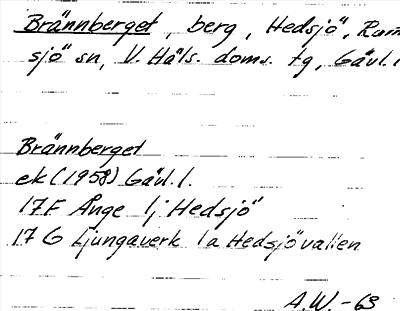 Brännberget, berg, Hedsjö, Rum
sjö sn, V. Häls. doms. tg, Gävl. l
Brännberget
ek (1958) Gävl. l.
17F Ånge 1j Hedsjö
17 G Ljungaverk 1a Hedsjövallen
A.W. -63